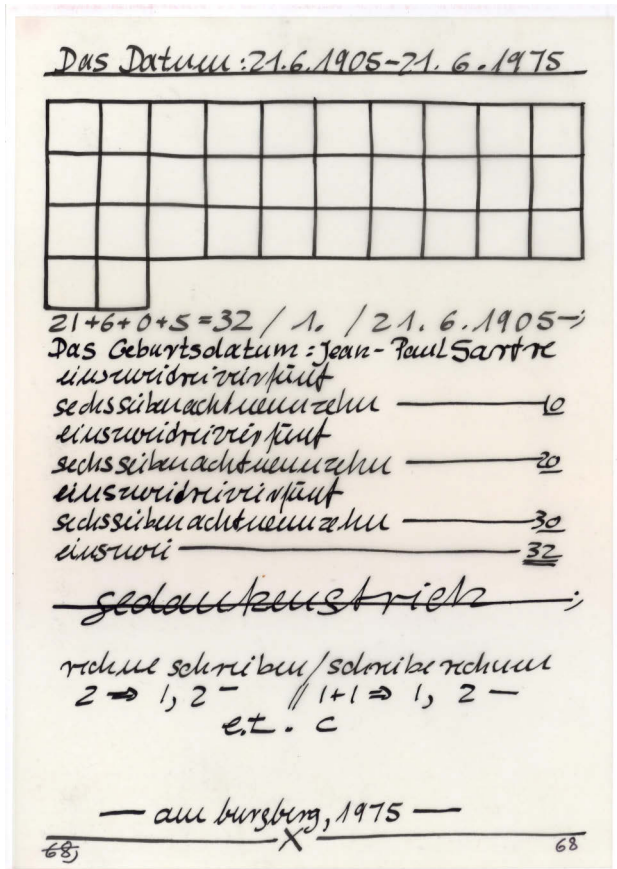 Das Datum: 21.6.1905-21.6.1975
21+6+0+5=32 / 1. / 21.6.1905-;
Das Geburtsdatum: Jean-Paul Sartre
einszweidreivierfünf
sechssiebenachtneunzehn — 10
einszweidreivierfünf
sechssiebenachtneunzehn — 20
einszweidreivierfünf
sechssiebenachtneunzehn — 30
einszwei — 32
gedankenstrich -;
rechne schreiben/schreibe rechnen
2 ⇒ 1, 2 - // 1+1 ⇒ 1, 2 —
e.t. c
— am burgberg, 1975 —
68, X 68